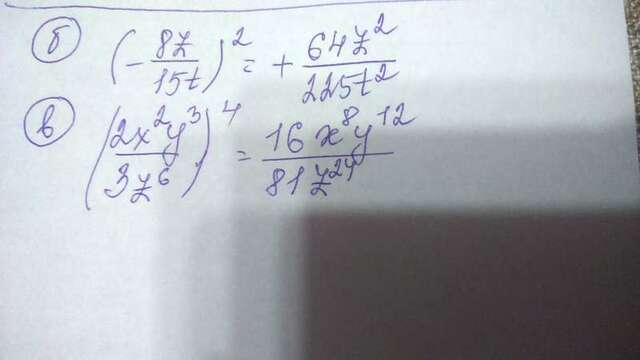 б) (-8z/15t)² = + 64z²/225t²
в) (2x²y³/3z⁶)⁴ = 16x⁸y¹²/81z²⁴